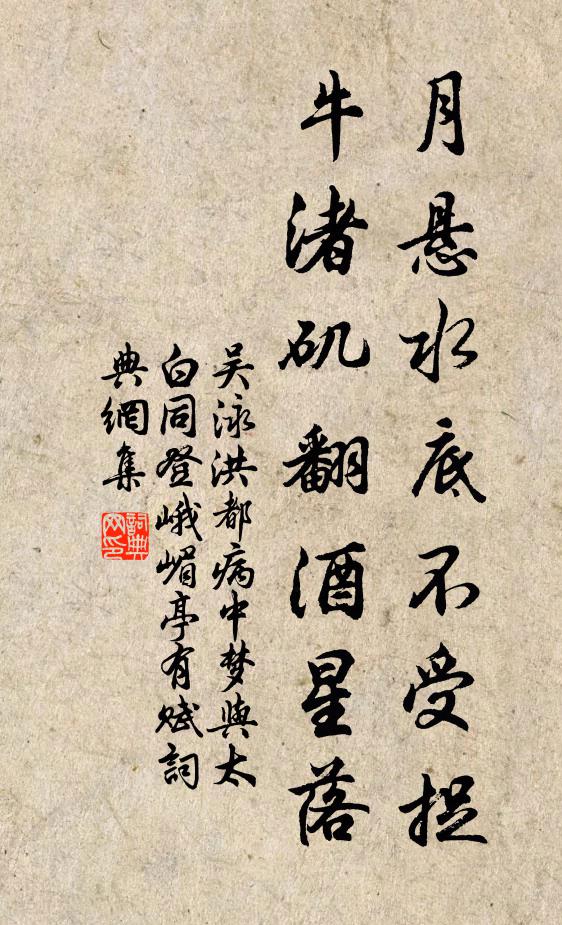 月悬水底不受捉
牛渚矶翻酒星落
吴泳洪都病中梦與太
白同登峨嵋亭有赋詞
典網集
詞典網印